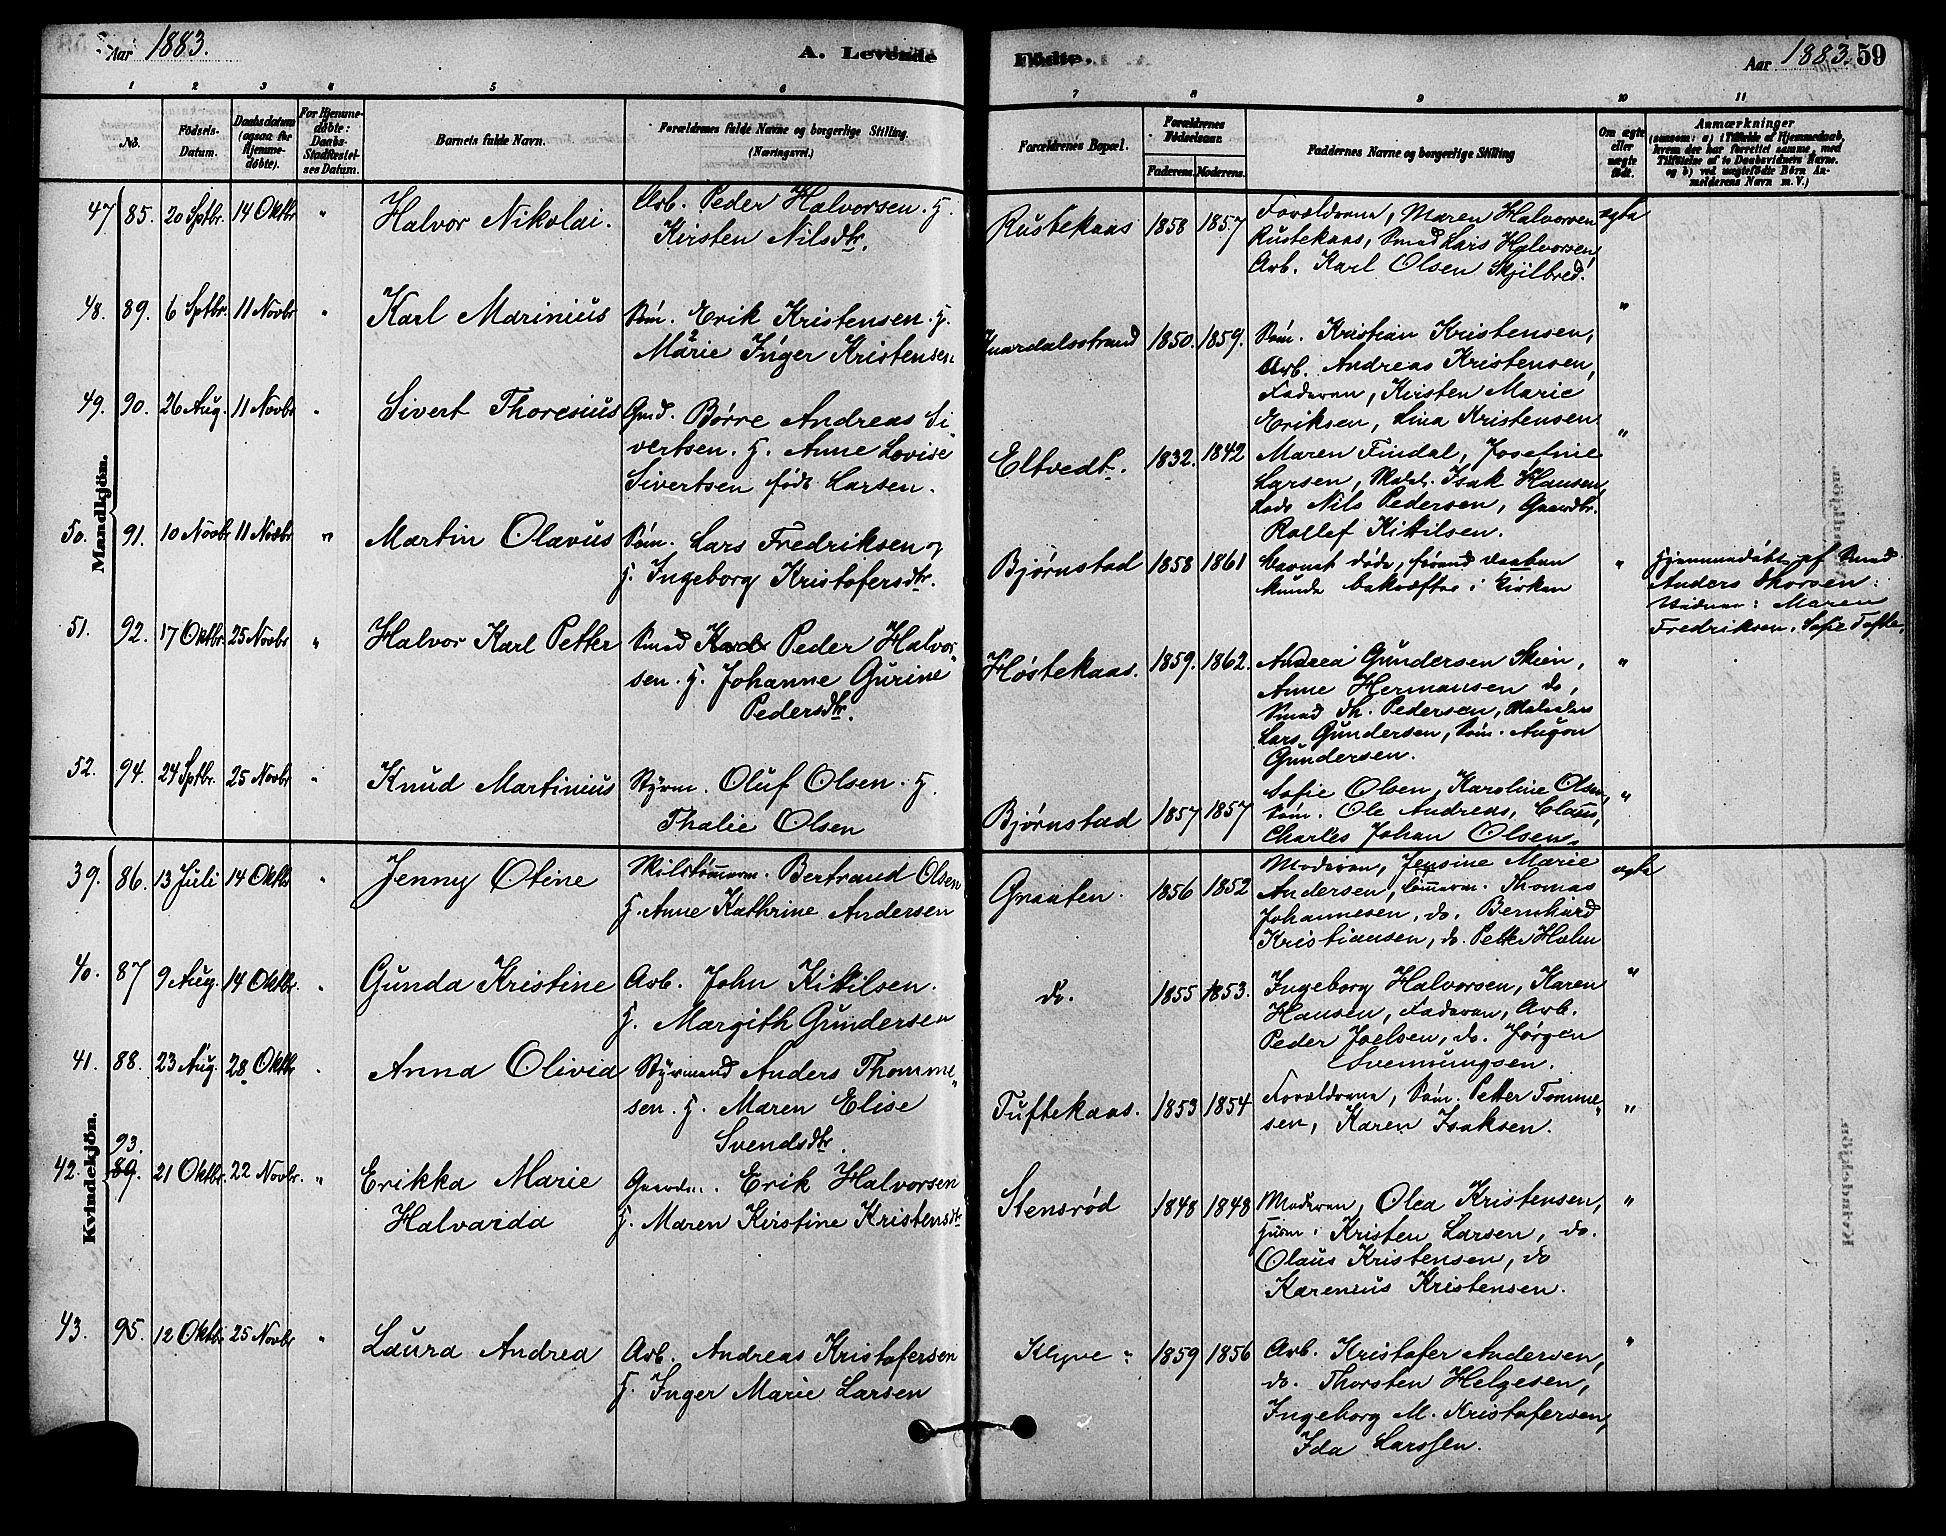 Aar 1883.
A. Levende Fødte.
Aar 1883. 59
1 2 3 4 5 6 7 8 9 10 11
No.
Fødsels-Datum.
Daabsdatum (ogsaa for Hjemme-døbte).
For Hjemme-døbte:
Barnets fulde Navn.
Forældrenes fulde Navne og borgerlige Stilling.
(Næringsvei.)
Forældrenes Bopæl.
Forældrenes Fødselsaar.
Faderens. Moderens.
Faddernes Navne og borgerlige Stilling
Om ægte eller uægte født.
Anmærkninger
(saasom: a) i Tilfælde af Hjemmedaab, hvem der har forrettet samme, med Tilføielse af to Daabsvidners Navne. og b) ved uægtefødte Børn Anmelderens Navn m. V.)
Mandkjön.
47 85. 20 Sptbr. 14 Oktbr " Halvor Nikolai. Arb. Peder Halvorsen. H.
Kirsten Nilsdtr.
Rustekaas 1858 1857 Forældrene, Maren Halvorsen ægte
Rustekaas, Smed Lars Halvorsen,
Arb. Karl Olsen Skjilbred.
48. 89. 6 Sptbr. 11 Novbr " Karl Marinius Søm. Erik Kristensen. H.
Marie Inger Kristensen
Knardalsstrand 1850. 1859. Søm. Kristian Kristensen, "
Arb. Andreas Kristensen,
Faderen, Kirsten Marie
Eriksen, Lina Kristensen
49. 90. 26 Aug. 11 Novbr " Sivert Thoresius Gmd. Børre Andreas Si
vertsen. H. Anne Lovise
Sivertsen født Larsen.
Eltvedt. 1832. 1842 Maren Findal, Josefine "
Larsen, Isak Hansen,
Nils Pedersen, Gaardbr.
Rollef Kittilsen.
50. 91. 10 Novbr 11 Novbr " Martin Olavus Søm. Lars Fredriksen og
H. Ingeborg Kristofersdtr.
Bjørnstad 1858 1861 Barnet døde, førend Daaben "
kunde bekræftes i Kirken
Hjemmedøbt af Smed
Anders Thorsen.
Vidner: Maren
Fredriksen, Sofie Tofte.
51. 92. 17 Oktbr. 25 Novbr " Halvor Karl Petter Smed Karl Peder Halvor
sen. H. Johanne Gurine
Pedersdtr.
Høstekaas. 1859. 1862. Andrea Gundersen Skien, "
Anne Hermansen do,
Smed Th. Pedersen,
Lars Gundersen, Søm. Augon
Gundersen.
52. 94. 24 Sptbr. 25 Novbr " Knud Martinius Styrm. Oluf Olsen. H.
Thalie Olsen
Bjørnstad 1857 1857 Sofie Olsen, Karoline Olsen, "
Søm. Ole Andreas, Claus,
Charles Johan Olsen.
Kvindekjön.
39. 86. 13 Juli 14 Oktbr " Jenny Otine Bertrand Olsen
H. Anne Kathrine Andersen
Graaten. 1856 1852 Moderen, Jensine Marie ægte
Andersen, Tømmerm. Thomas
Johannesen, do. Bernhard
Kristiansen, do. Petter Holm
40. 87 9 Aug. 14 Oktbr. " Gunda Kristine Arb. John Kittilsen.
H. Margith Gundersen
do. 1855 1853. Ingeborg Halvorsen, Karen "
Hansen, Faderen, Arb.
Peder Joelsen, do. Jørgen
Svennungsen.
41. 88. 23 Aug. 28 Oktbr " Anna Olivia Styrmand Anders Thomme
sen. H. Maren Elise
Svendsdtr.
Tuftekaas. 1853 1854 Forældrene, Søm. Petter Tomme "
sen, Karen Isaksen.
93.
42. 89. 21 Oktbr. 22 Novbr. " Erikka Marie Gaardm. Erik Halvorsen
Halvarda H. Maren Kirstine Kristensdtr
Stensrød 1848 1848 Moderen, Olea Kristensen, "
Husm. Kristen Larsen, do.
Olaus Kristensen, do
Karenius Kristensen.
43. 95. 12 Oktbr 25 Novbr " Laura Andrea Arb. Andreas Kristofersen
H. Inger Marie Larsen
Klyve " 1859 1856 Arb. Kristofer Andersen, "
do. Thorsten Helgesen,
Ingeborg M. Kristofersen,
Ida Larssen.